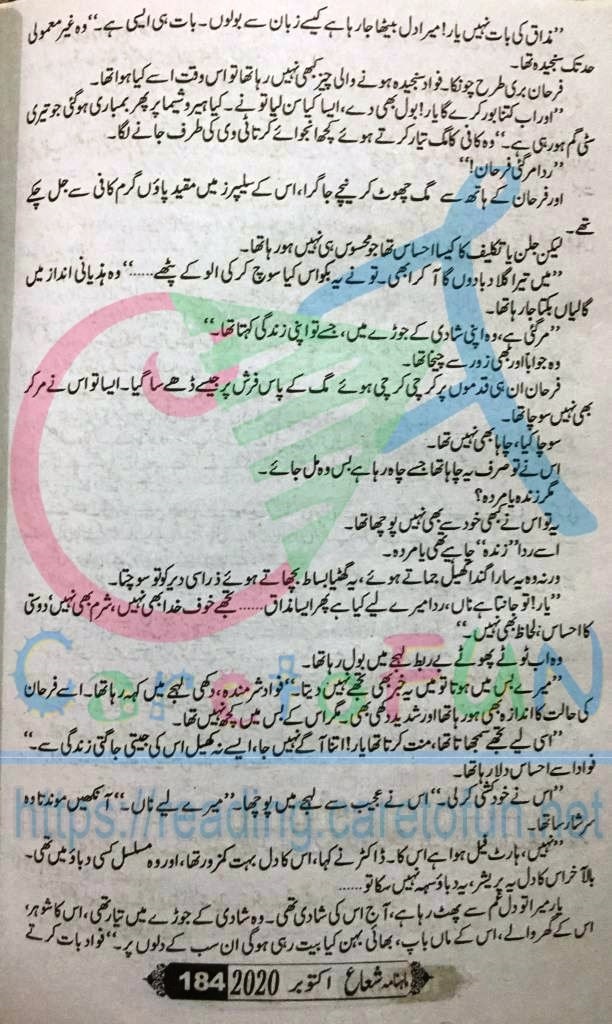 ”مذاق کی بات نہیں یار! میرا دل بیٹھا جا رہا ہے کیسے زبان سے بولوں۔ بات ہی ایسی ہے۔“ وہ غیر معمولی
حد تک سنجیدہ تھا۔
فرحان بری طرح چونکا۔ فواد سنجیدہ ہونے والی چیز کبھی نہیں رہا تھا تو اس وقت اسے کیا ہوا تھا۔
”اور اب کتنا بور کرے گا یار! بول بھی دے، ایسا کیا سن لیا تو نے۔ کیا ہیروشیما پر پھر بمباری ہو گئی جو تیری
سٹی گم ہو رہی ہے۔“ وہ کافی کا مگ تیار کرتے ہوئے کچھ انجوائے کرتا ٹی وی کی طرف جانے لگا۔
”ردا مر گئی فرحان!“
اور فرحان کے ہاتھ سے مگ چھوٹ کر نیچے جا گرا، اس کے سلیپرز میں مقید پاؤں گرم کافی سے جل چکے
تھے۔
لیکن جلن یا تکلیف کا کیسا احساس تھا جو محسوس ہی نہیں ہو رہا تھا۔
”میں تیرا گلا دبا دوں گا آ کر ابھی۔ تو نے یہ بکواس کیا سوچ کر کی الو کے پٹھے......“ وہ ہذیانی انداز میں
گالیاں بکتا جا رہا تھا۔
”مر گئی ہے، وہ اپنی شادی کے جوڑے میں، جسے تو اپنی زندگی کہتا تھا۔“
وہ جوابا اور بھی زور سے چیخا تھا۔
فرحان ان ہی قدموں پر کرچی کرچی ہوئے مگ کے پاس فرش پر جیسے ڈھے سا گیا۔ ایسا تو اس نے مر کر
بھی نہیں سوچا تھا۔
سوچا کیا، چاہا بھی نہیں تھا۔
اس نے تو صرف یہ چاہا تھا جسے چاہ رہا ہے بس وہ مل جائے۔
مگر زندہ یا مردہ؟
یہ تو اس نے کبھی خود سے بھی نہیں پوچھا تھا۔
اسے ردا ”زندہ“ چاہیے تھی یا مردہ۔
ورنہ وہ یہ سارا گندا کھیل جماتے ہوئے، یہ گھٹیا بساط بچھاتے ہوئے ذرا سی دیر کو تو سوچتا۔
”یار! تو جانتا ہے ناں، ردا میرے لیے کیا ہے پھر ایسا مذاق...... تجھے خوف خدا بھی نہیں، شرم بھی نہیں، دوستی
کا احساس، لحاظ بھی نہیں۔“
وہ اب ٹوٹے پھوٹے بے ربط لہجے میں بول رہا تھا۔
”میرے بس میں ہوتا تو میں یہ خبر بھی تجھے نہیں دیتا۔“ فواد شرمندہ، دکھی لہجے میں کہہ رہا تھا۔ اسے فرحان
کی حالت کا اندازہ بھی ہو رہا تھا اور شدید دکھ بھی۔ مگر اس کے بس میں کچھ نہیں تھا۔
”اسی لیے تجھے سمجھاتا تھا، منت کرتا تھا یار! اتنا آگے نہیں جا، ایسے نہ کھیل اس کی جیتی جاگتی زندگی سے۔“
فواد اسے احساس دلا رہا تھا۔
”اس نے خودکشی کر لی۔“ اس نے عجیب سے لہجے میں پوچھا۔ ”میرے لیے ناں۔“ آنکھیں موندتا وہ
سرشار سا تھا۔
”نہیں، ہارٹ فیل ہوا ہے اس کا۔ ڈاکٹر نے کہا، اس کا دل بہت کمزور تھا، اور وہ مسلسل کسی دباؤ میں تھی۔
بالآخر اس کا دل یہ پریشر، یہ دباؤ سہہ نہیں سکا تو......
یار میرا تو دل غم سے پھٹ رہا ہے، آج اس کی شادی تھی۔ وہ شادی کے جوڑے میں تیار تھی، اس کا شوہر،
اس کے گھر والے، اس کے ماں باپ، بھائی بہن کیا بیت رہی ہوگی ان سب کے دلوں پر۔“ فواد بات کرتے
ماہنامہ شعاع اکتوبر 2020 184
CaretoFUN
https://reading.caretofun.net